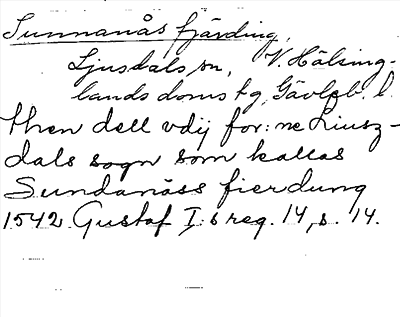 Sunnanås fjärding,
Ljusdals sn, V. Hälsing-
lands doms tg, Gävleb. l.
then dell vdij for:ne Liusz-
dals sogn som kallas
Sundanåss fierdung
1542 Gustaf I:s reg. 14, s. 14.